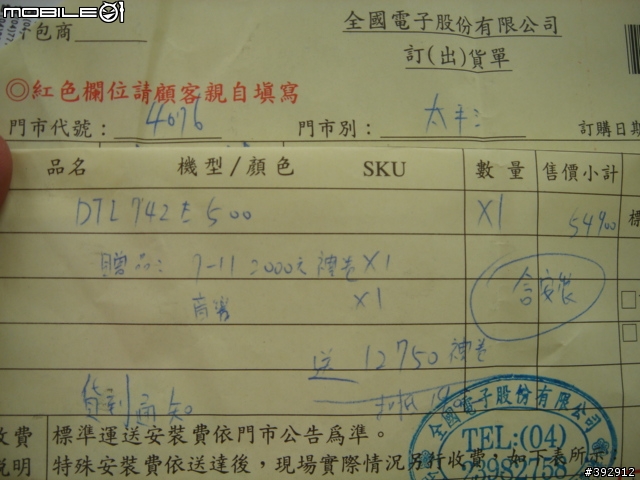 MOBILE01
包商
全國電子股份有限公司
訂(出)貨單
◎紅色欄位請顧客親自填寫
門市代號： 4676 門市別： 太平 訂購日
品名 機型/顏色 SKU 數量 售價小計
X1 54900
贈品： 7-11 2000元禮卷 X1
X1
含安裝
送 12750 禮卷
貨到通知
全國電子股份有限公司
TEL:(04)
23982758
收費 標準運送安裝費依門市公告為準。
說明 特殊安裝費依送達後，現場實際情況另行收費，如下表所示
#392912